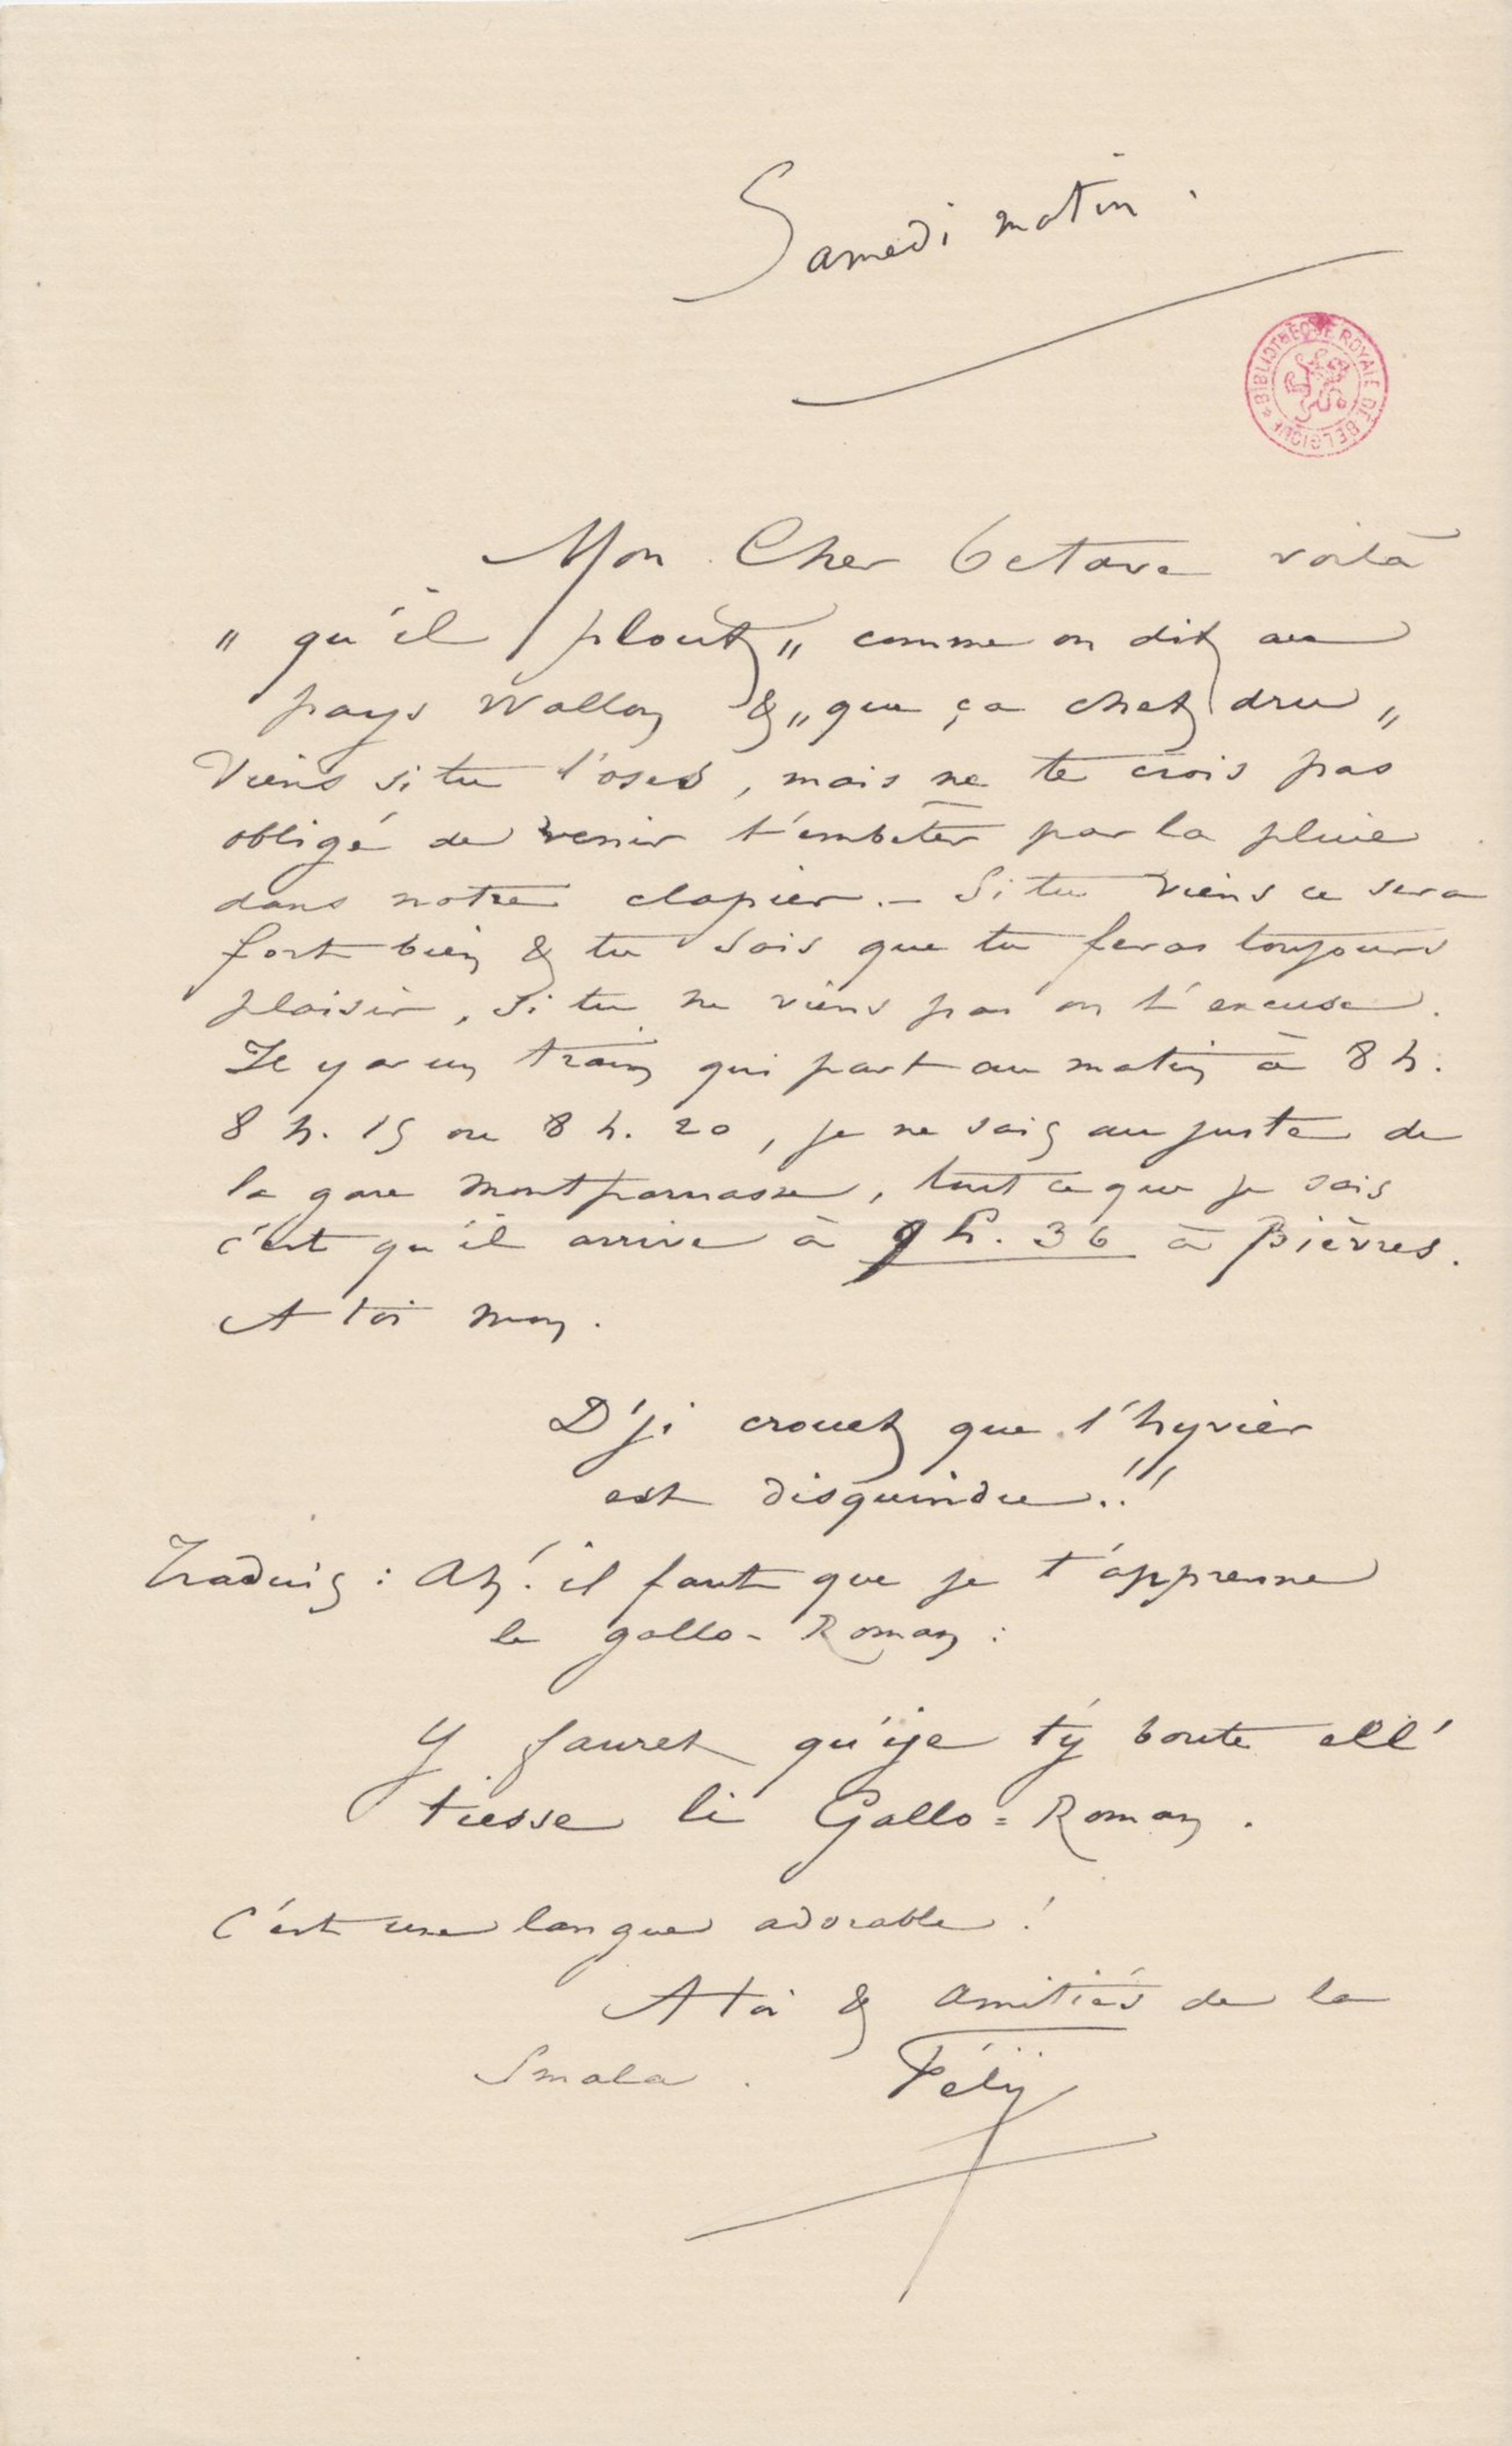 Samedi matin.
BIBLIOTHÈQUE ROYALE DE BELGIQUE
Mon Cher Octave voilà
" qu'il plout " comme on dit au
pays Wallon & " que ça chet dru "
Viens si tu l'oses, mais ne te crois pas
obligé de venir t'embêter par la pluie
dans notre clapier. – Si tu viens ce sera
fort bien & tu sais que tu feras toujours
plaisir, si tu ne viens pas on t'excuse.
Il y a un train qui part au matin à 8 h.
8 h. 15 ou 8 h. 20, je ne sais au juste de
la gare Montparnasse, tout ce que je sais
c'est qu'il arrive à 9 h. 36 à Bièvres.
A toi mon.
D'ji crouet que l'hyvier
est disquindu..!!
Traduis : Ah! il faut que je t'apprenne
le gallo-Roman :
Y fauret qu'ije t'y boute ell'
tiesse li Gallo=Roman.
C'est une langue adorable !
A toi & amitiés de la
Smala. Fély